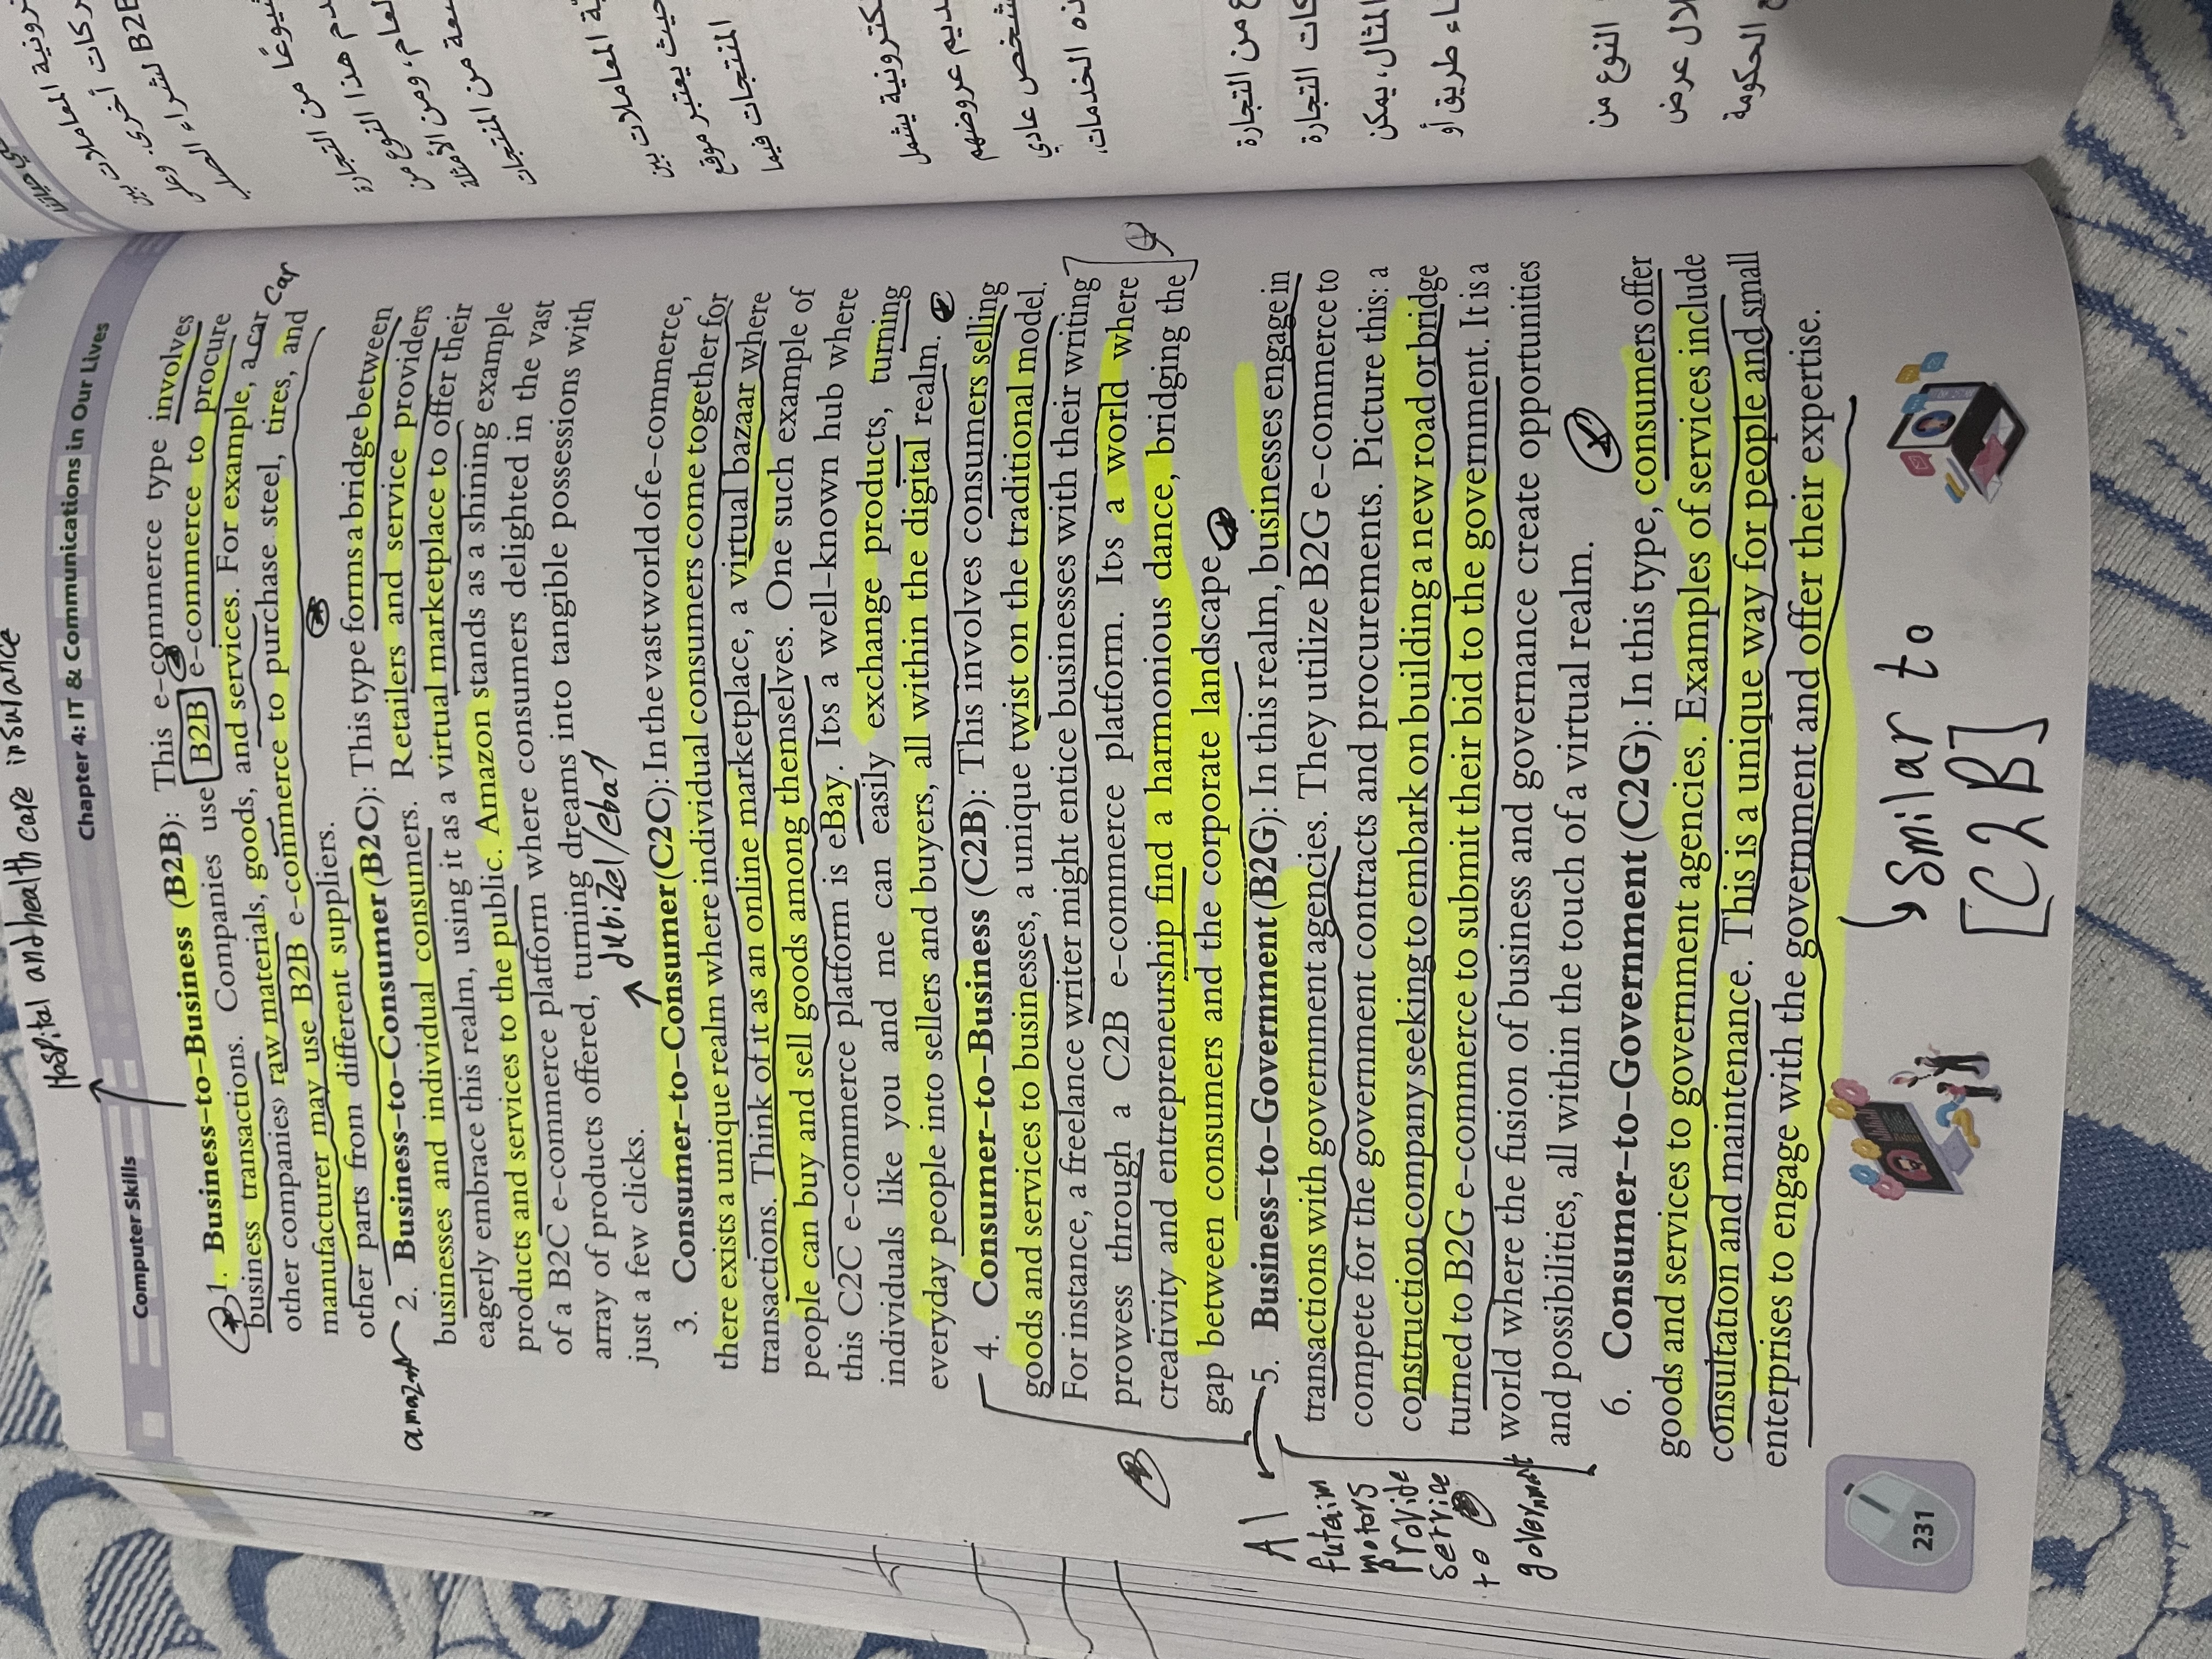 Hospital and health care insurance
Computer Skills
Chapter 4: IT & Communications in Our Lives
1. Business–to–Business (B2B): This e–commerce type involves
business transactions. Companies use B2B e–commerce to procure
other companies› raw materials, goods, and services. For example, a car
car
manufacturer may use B2B e–commerce to purchase steel, tires, and
other parts from different suppliers.
2. Business–to–Consumer (B2C): This type forms a bridge between
businesses and individual consumers. Retailers and service providers
eagerly embrace this realm, using it as a virtual marketplace to offer their
products and services to the public. Amazon stands as a shining example
of a B2C e–commerce platform where consumers delighted in the vast
array of products offered, turning dreams into tangible possessions with
just a few clicks.
dubizel/ebay
3. Consumer–to–Consumer (C2C): In the vast world of e–commerce,
there exists a unique realm where individual consumers come together for
transactions. Think of it as an online marketplace, a virtual bazaar where
people can buy and sell goods among themselves. One such example of
this C2C e–commerce platform is eBay. It›s a well–known hub where
individuals like you and me can easily exchange products, turning
everyday people into sellers and buyers, all within the digital realm.
4. Consumer–to–Business (C2B): This involves consumers selling
goods and services to businesses, a unique twist on the traditional model.
For instance, a freelance writer might entice businesses with their writing
prowess through a C2B e–commerce platform. It›s a world where
creativity and entrepreneurship find a harmonious dance, bridging the
gap between consumers and the corporate landscape.
5. Business–to–Government (B2G): In this realm, businesses engage in
transactions with government agencies. They utilize B2G e–commerce to
compete for the government contracts and procurements. Picture this: a
construction company seeking to embark on building a new road or bridge
turned to B2G e–commerce to submit their bid to the government. It is a
world where the fusion of business and governance create opportunities
and possibilities, all within the touch of a virtual realm.
Al
futaim
motors
provide
service
to
government
6. Consumer–to–Government (C2G): In this type, consumers offer
goods and services to government agencies. Examples of services include
consultation and maintenance. This is a unique way for people and small
enterprises to engage with the government and offer their expertise.
smilar to
[C2B]
231
ركات أخرى. وعلى
B2B لشراء
دم هذا النوع من
العام، ومن الأمثلة
ة المعاملات بين
حيث يعتبر موقع
المنتجات فيما
كترونية يشمل
ديم عروضهم
شخص عادي
ذه الخدمات،
ع من التجارة
كات التجارة
المثال، يمكن
اء طريق أو
النوع من
لال عرض
ع الحكومة